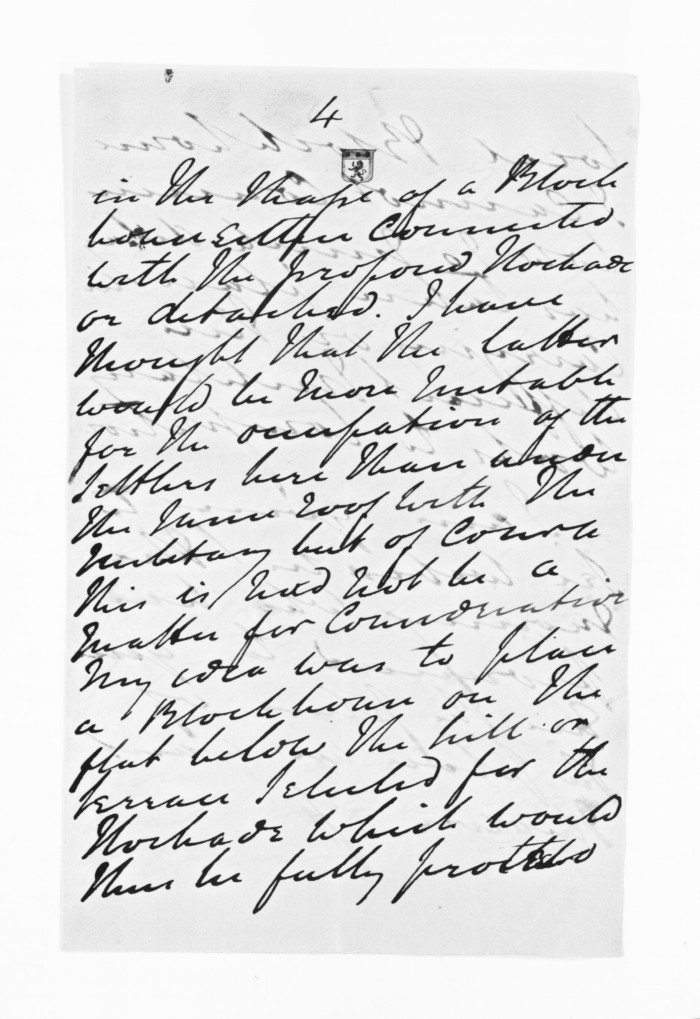 4
in the shape of a Block
house either connected
with the proposed Stockade
or detached. I have
thought that the latter
would be more suitable
for the occupation of the
settlers here than under
the same roof with the
military but of course
this is need not be a
matter for consideration
My idea was to place
a Blockhouse on the
flat below the hill or
terrace selected for the
Stockade which would
thus be fully protected